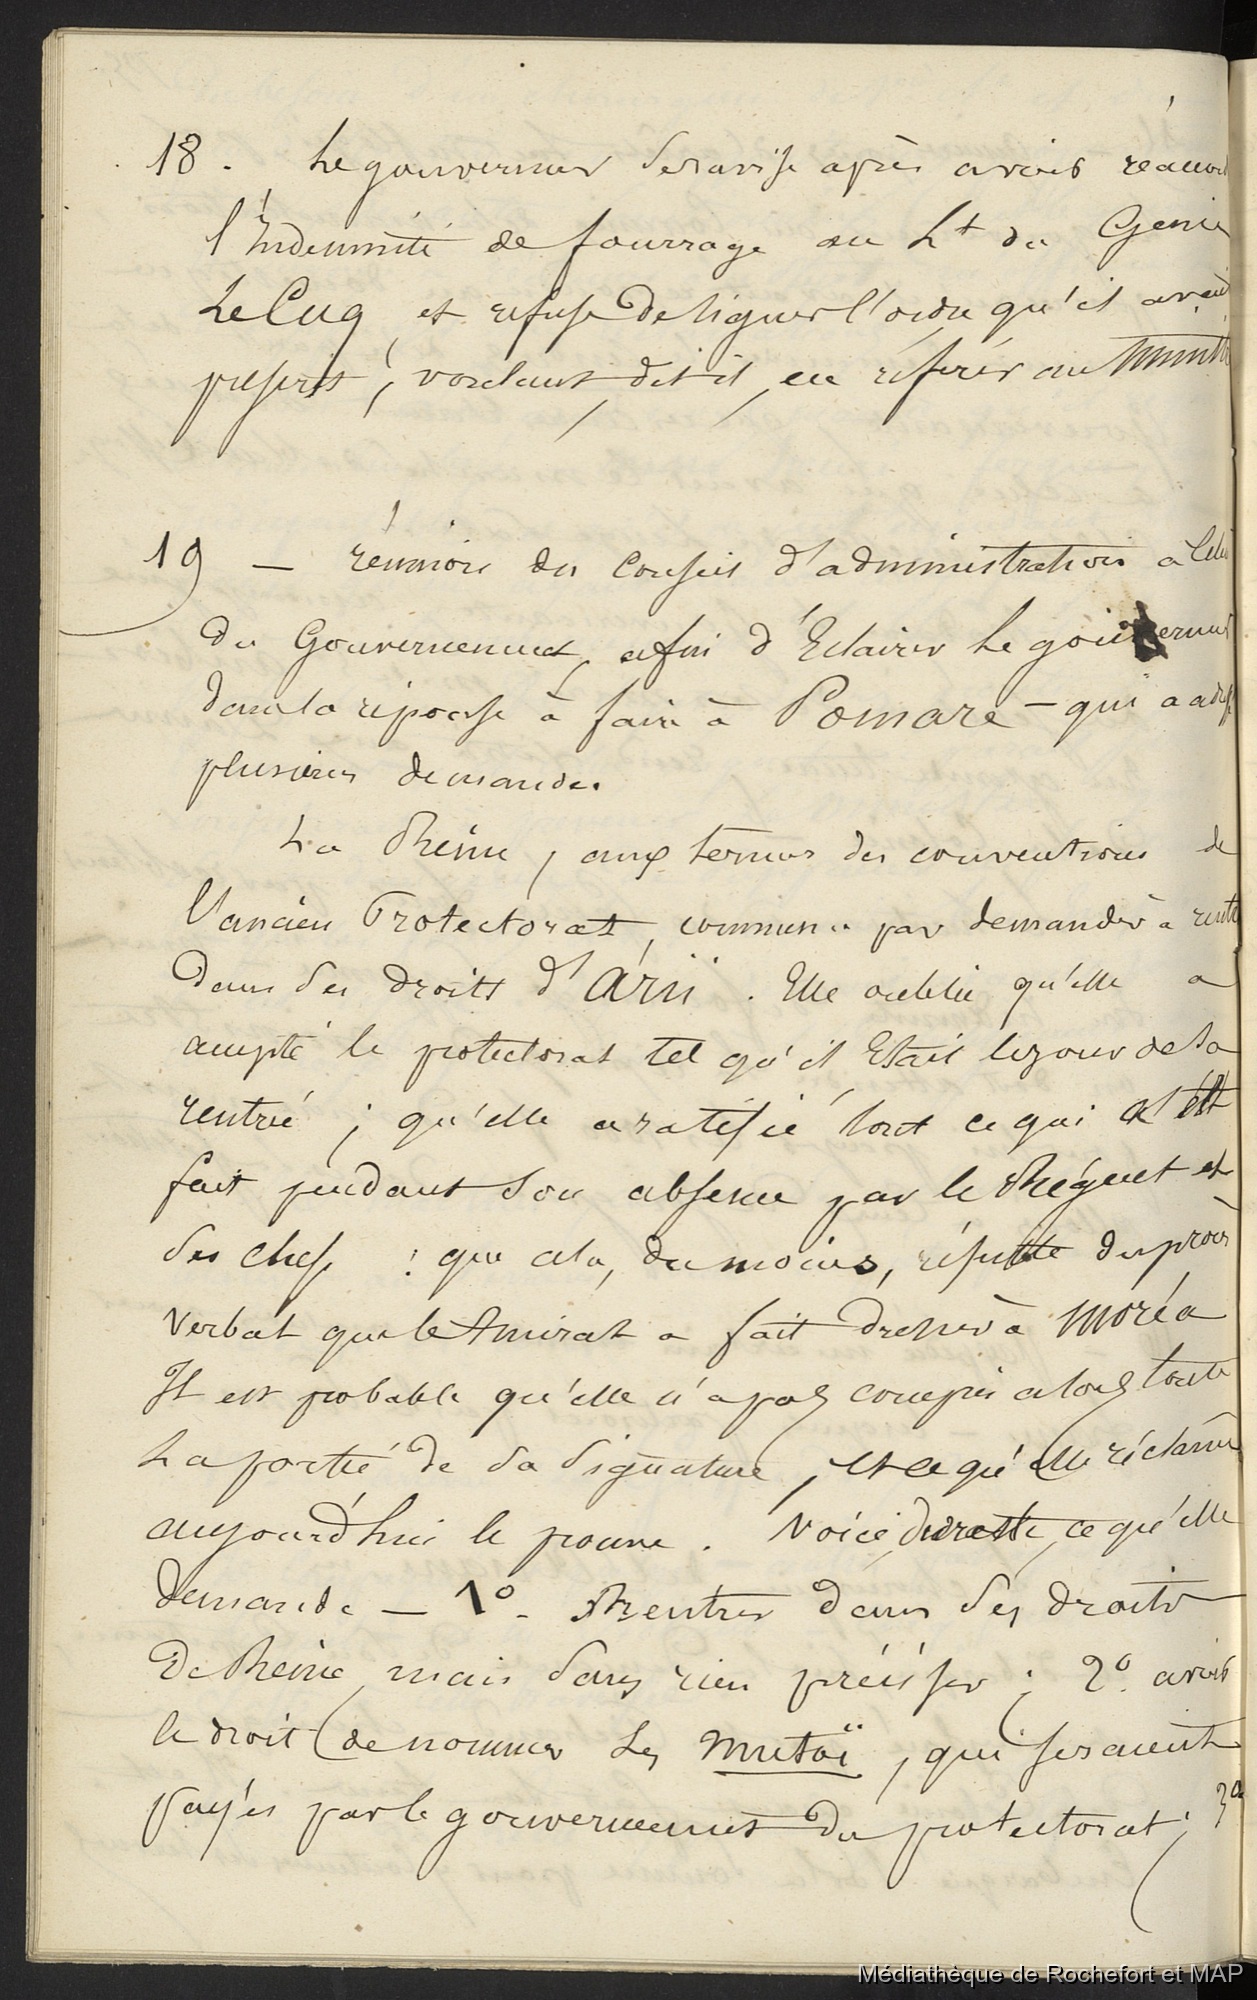 18. Le gouverneur se ravise après avoir réclamé
l'Indemnité de fourrage au Lt du Genie
Le Cuq, et refuse de signer l'ordre qu'il avait
prescrit, voulant, dit il, en référer au Ministre
19 — réunion du Conseil d'administration à l'hôtel
du Gouvernement, afin d'Eclairer le gouverneur
dans la réponse à faire à Pomare — qui a adressé
plusieurs demandes.
La Reine, aux termes des conventions de
l'ancien Protectorat, commence par demander à rentrer
dans ses droits d'Arii. Elle oublie qu'elle a
accepté le protectorat tel qu'il Etait le jour de sa
rentrée ; qu'elle a ratifié tout ce qui s'est
fait pendant son absence par le Régent et
les chefs : que cela, du moins, résulte du procès
verbal que l'Amiral a fait dresser à Moréa
Il est probable qu'elle n'a pas compris alors toute
La portée de sa signature, et ce qu'elle réclame
aujourd'hui le prouve. Voici, du reste, ce qu'elle
demande — 1º. Rentrer dans ses droits
De Reine, mais sans rien préciser ; 2º. avoir
le droit de nommer les Mutoï, qui seraient
payés par le gouvernement du protectorat ; 3º
Médiathèque de Rochefort et MAP